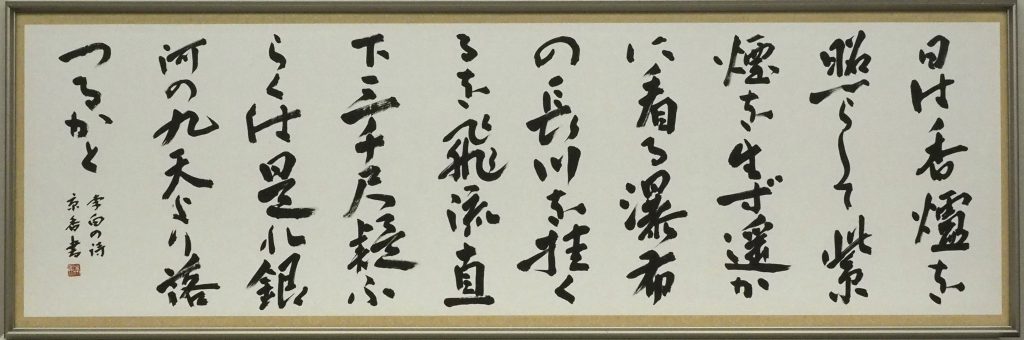 日は香爐を
照らして紫
煙を生ず遥か
に看る瀑布
の長川を挂く
るを飛流直
下三千尺疑ふ
らくは是れ銀
河の九天より落
つるかと
李白の詩
京香書